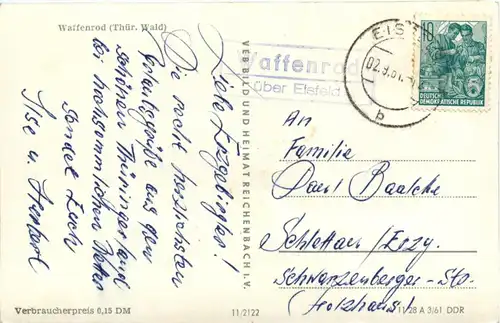 Waffenrod (Thür. Wald)
Liebe Erzgebirgler!
Die recht herzlichsten
Urlaubsgrüße aus dem
schönen Thüringerland
bei hochsommlichem Wetter
sendet Euch
Ilse u. Herbert
Verbraucherpreis 0,15 DM
VEB BILD UND HEIMAT REICHENBACH I.V.
11/2122
Waffenrod
über Eisfeld
EISF
02.9.61
b
10
DEUTSCHE
DEMOKRATISCHE REPUBLIK
An
Familie
Paul Baalcke
Schlettau/Erzg.
Schwarzenberger-Str.
(Holzhaus!)
11/28 A 3/61 DDR